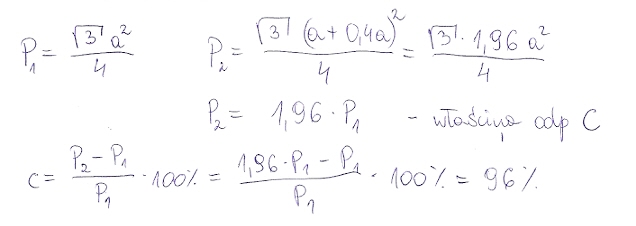 P₁ = √3 a² / 4    P₂ = √3 (a + 0,4a)² / 4 = √3 · 1,96 a² / 4
P₂ = 1,96 · P₁ - właściwa odp C
c = (P₂ - P₁) / P₁ · 100% = (1,96 · P₁ - P₁) / P₁ · 100% = 96%